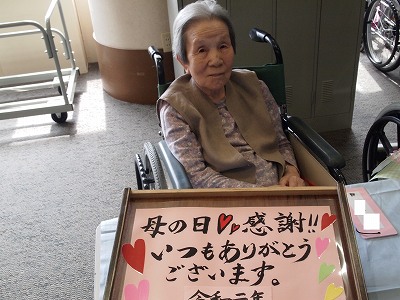 母の日♥感謝!!
いつもありがとう
ございます。
令和二年